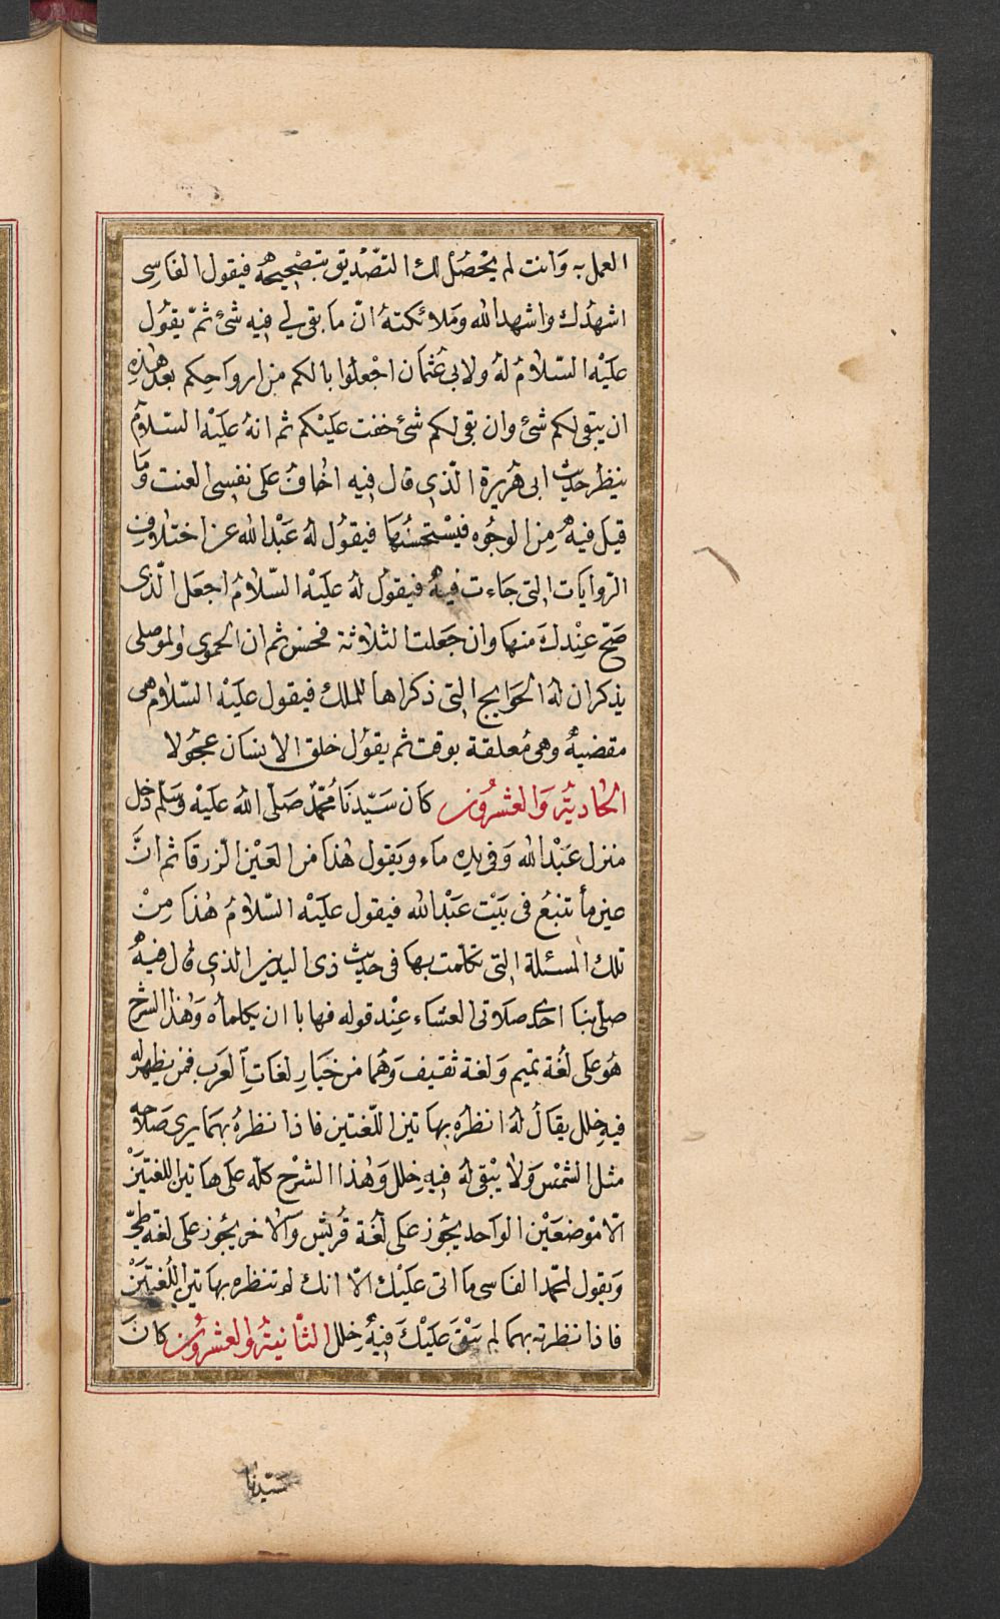 العمل به وَانت لم يَحْصُل لك التصْديق بتصْحِيحهُ فيقول الفاسى
اشهدُك واشهد الله وَملائكتهُ انّ ما بقى لي فيه شئ ثمّ يقول
علَيْه السّلامُ لهُ ولابى عثمان اجْعلوا بالكم من ارواحكم بعد هٰذِهِ
ان يبقى لكم شئ وان بقى لكم شئ خفت عليْكم ثم انهُ علَيْه السّلامُ
ينظر حديث ابى هُريرة الّذى قال فيه اخاف على نفسى العنت وَمَا
قيل فيهُ مِن الوجُوه فيَسْتحسنُها فيقول لهُ عَبْد الله عن اختلاف
الرّوايات التى جَاءت فيهُ فيقول لهُ علَيْه السّلامُ اجعَل الّذى
صَحّ عِنْدكَ منها وان جَعلت الثلاثة فحسن ثم ان الحموى والموصلى
يذكران لهُ الحَوايج التى ذكراها للملك فيقول علَيْه السّلام هى
مقضيةٌ وهى مُعلقة بوقت ثم يقول خلق الانسان عجُولا
الحَاديَةُ وَالعشرُون كان سَيّدنَا مُحمّدٌ صَلّى اللهُ علَيْه وَسَلّم دخل
منزل عَبْد الله وَفى يدِه ماء ويَقول هٰذا من العَيْن الزرقا ثم انَّ
عين مأ تنبعُ فى بَيْت عَبْد الله فيقول علَيْه السّلامُ هٰذا مِنْ
تلك المسئلة التى تكلمت بها فى حديث ذى اليدين الذى قال فيهُ
صلى بنا احدى صلاتى العشاء عِنْد قوله فهابا ان يكلماهُ وَهٰذا الشرح
هُوَ على لُغة تميم وَلغة ثقيف وَهُما من خَيَارِ لغَاتِ العَرَب فمن يظهر لهُ
فيهِ خلل يقَالُ لهُ انظرُه بهَا تين اللّغتين فاذا نظرهُ بهما يرى صَلاحه
مثل الشمْس وَلا يَبْقى لهُ فيهِ خلل وَهٰذا الشرْح كلّه على هَا تين اللغتيَنْ
الّا موْضعَيْن الوَاحد يجُوز على لغَة قُريش وَالاخر يجُوز على لغة طىّ
وَيقول لمحمّد الفاسى ما اتى عليْك الّا انك لم تنظره بها تين اللُغتَيَنْ
فاذا نظرته بهما لم يَبْقَ علَيْكَ فيهُ خلل الثّانيَةُ وَالعشرُون كانَ
سَيّدنا